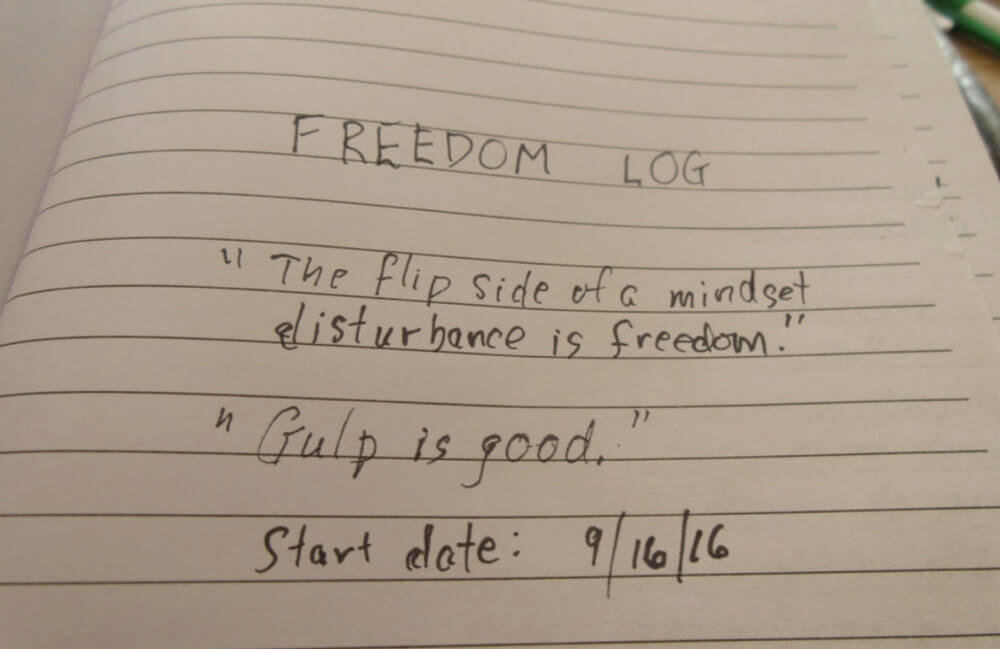 FREEDOM LOG
"The flip side of a mindset
disturbance is freedom."
"Gulp is good."
Start date: 9/16/16